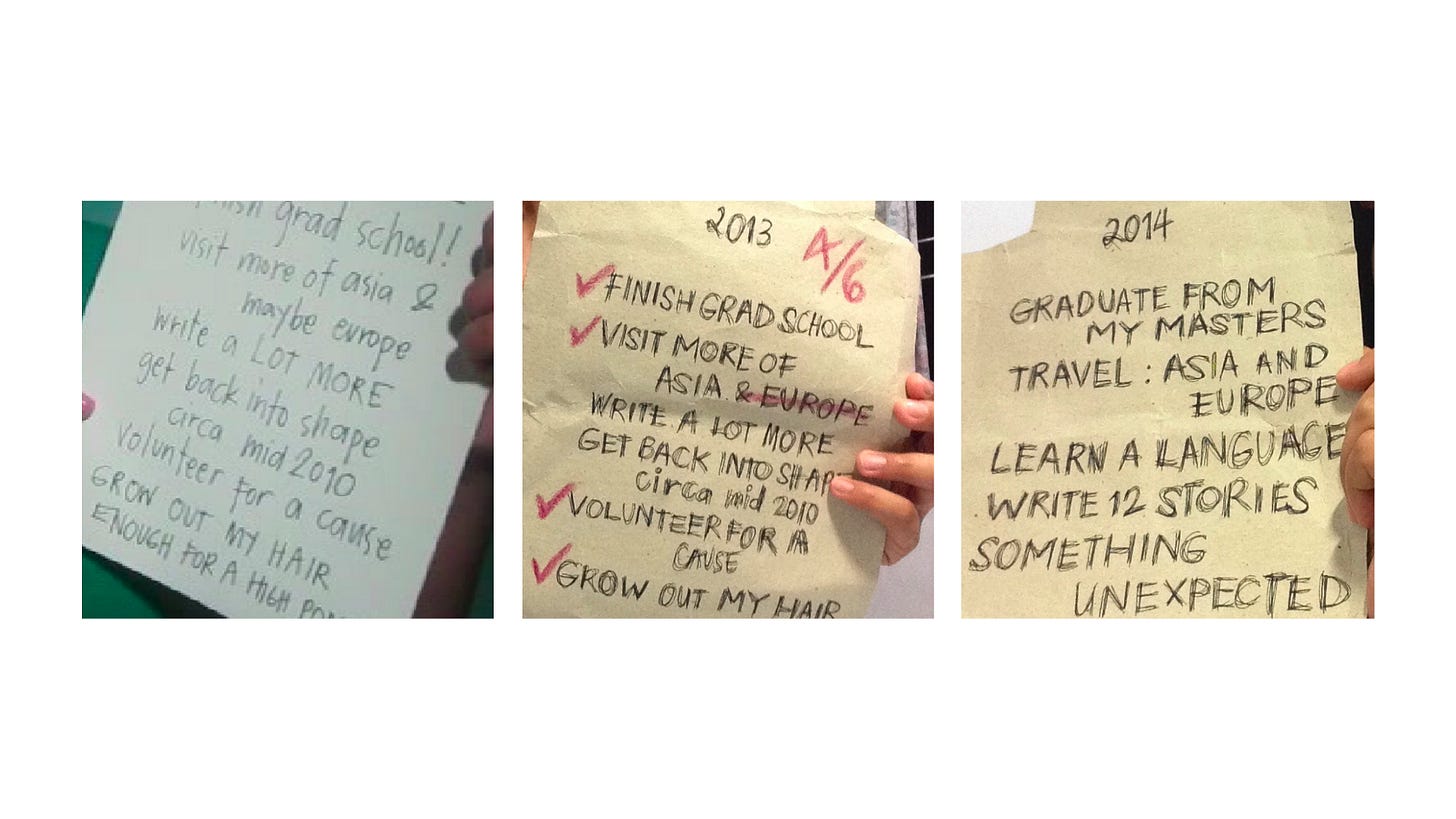 grad school!
visit more of asia &
maybe europe
write a LOT MORE
get back into shape
circa mid 2010
volunteer for a cause
GROW OUT MY HAIR
ENOUGH FOR A HIGH
2013
4/6
FINISH GRAD SCHOOL
VISIT MORE OF
ASIA & EUROPE
WRITE A LOT MORE
GET BACK INTO SHAP
circa mid 2010
VOLUNTEER FOR A
CAUSE
GROW OUT MY HAIR
2014
GRADUATE FROM
MY MASTERS
TRAVEL : ASIA AND
EUROPE
LEARN A LANGUAGE
WRITE 12 STORIES
SOMETHING
UNEXPECTED